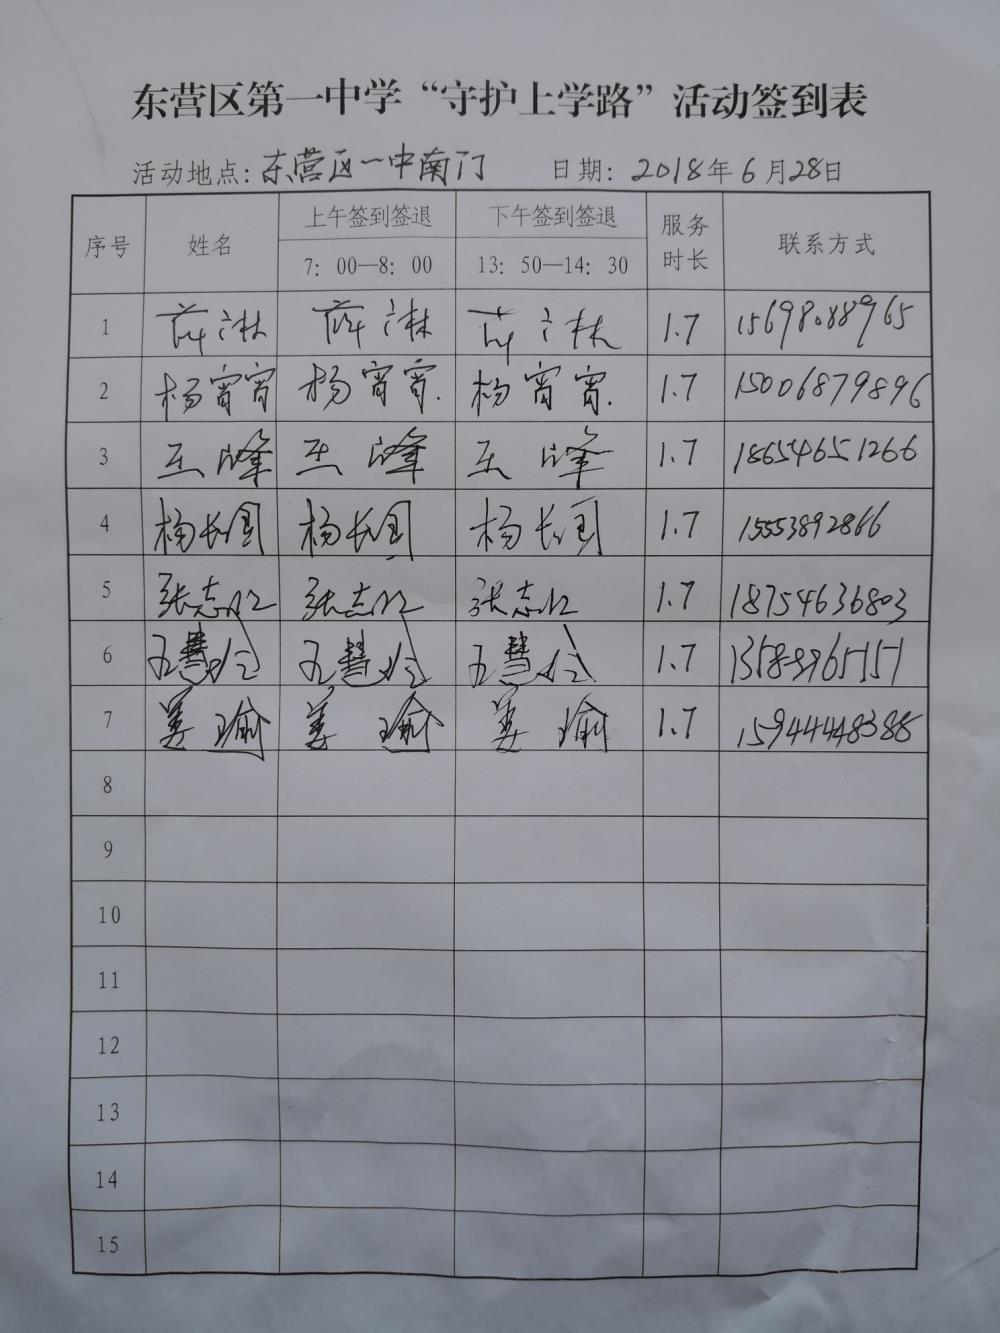 东营区第一中学“守护上学路”活动签到表
活动地点: 东营区一中南门 日期: 2018年6月28日
序号 姓名 上午签到签退 下午签到签退 服务时长 联系方式
7: 00—8: 00 13: 50—14: 30
1 1.7 15698088965
2 杨宵宵 杨宵宵. 杨宵宵. 1.7 15006879896
3 王峰 王峰 王峰 1.7 18654651266
4 杨长国 杨长国 杨长国 1.7 15553892866
5 张志 张志 张志 1.7 18754636803
6 王慧 王慧 王慧 1.7
7 姜瑜 姜瑜 姜瑜 1.7 15944448388
8
9
10
11
12
13
14
15